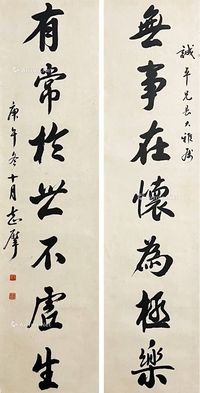 誠平兄長大雅屬
無事在懷為極樂
有常於世不虛生
庚午冬十月志摩